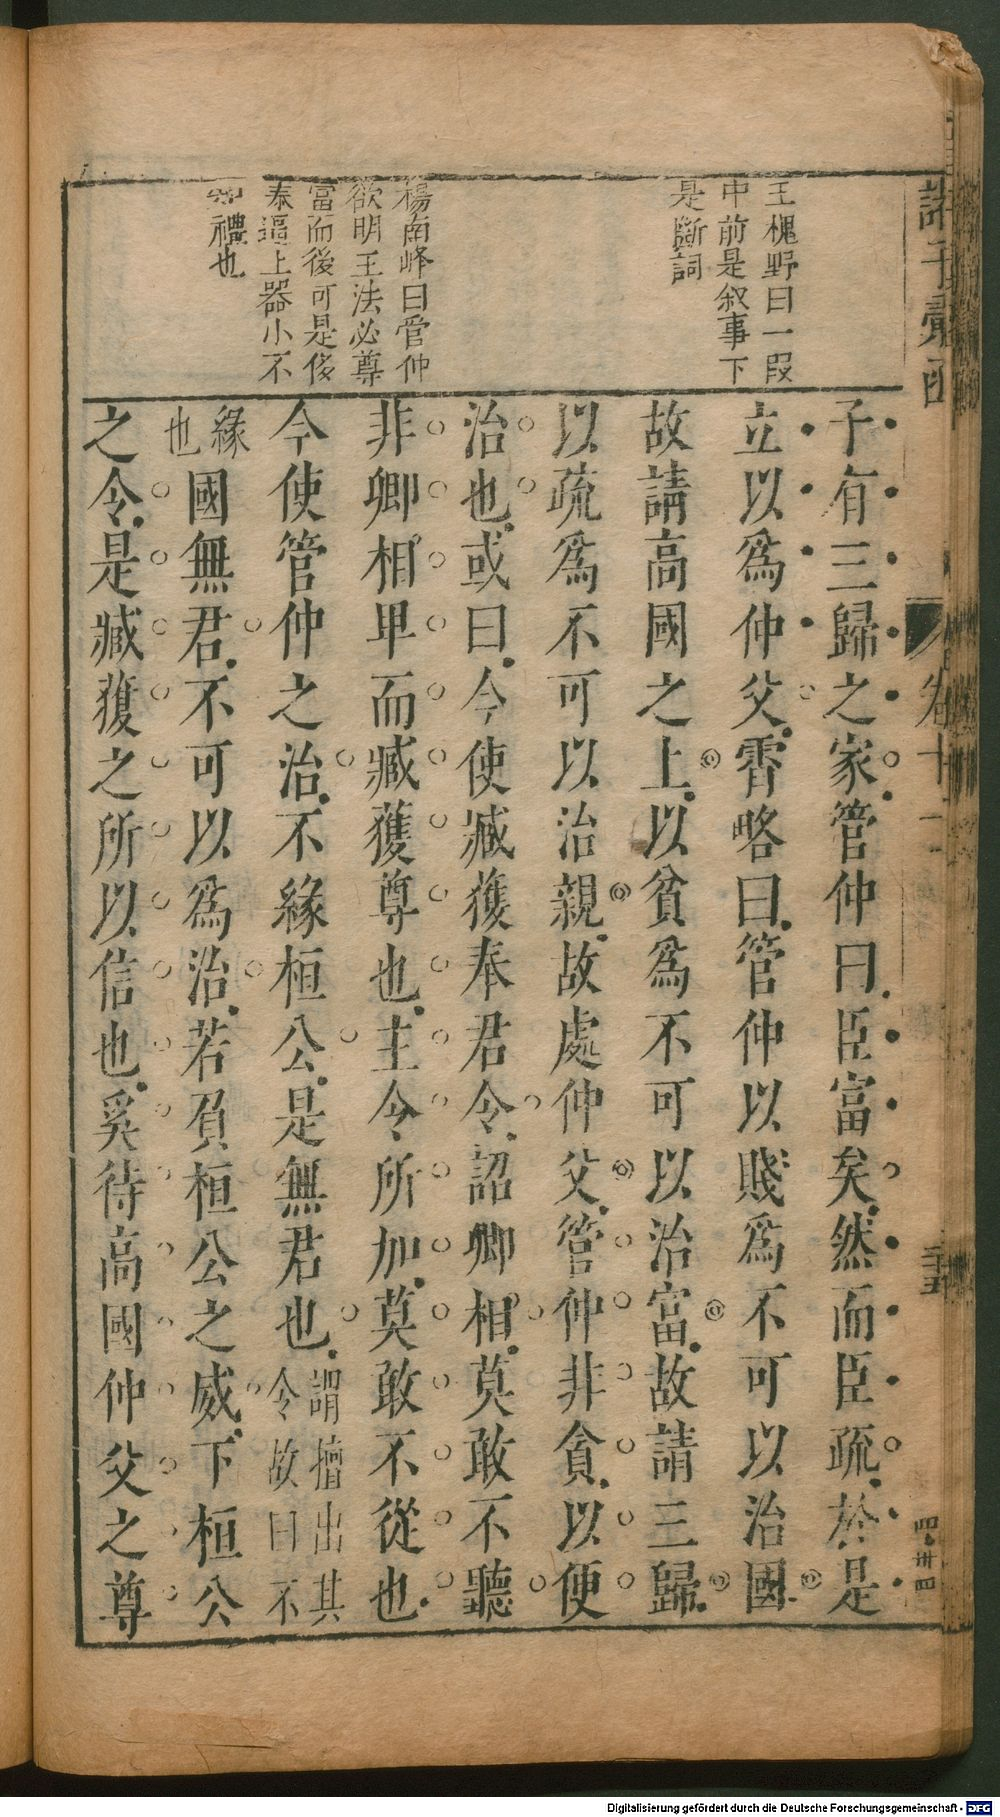 諸子彙函
卷十一
三十五
王槐野曰一段
中前是叙事下
是斷詞
楊南峰曰管仲
欲明王法必尊
富而後可是後
奉逼上器小不
知禮也
子有三歸之家管仲曰臣富矣然而臣疏於是
立以爲仲父霄略曰管仲以賤爲不可以治國
故請高國之上以貧爲不可以治富故請三歸
以疏爲不可以治親故處仲父管仲非貪以便
治也或曰今使臧獲奉君令詔卿相莫敢不聽
非卿相卑而臧獲尊也主令所加莫敢不從也
今使管仲之治不緣桓公是無君也謂擅出其
令故曰不
緣
也國無君不可以爲治若負桓公之威下桓公
之令是臧獲之所以信也奚待高國仲父之尊
Digitalisierung gefördert durch die Deutsche Forschungsgemeinschaft - DFG